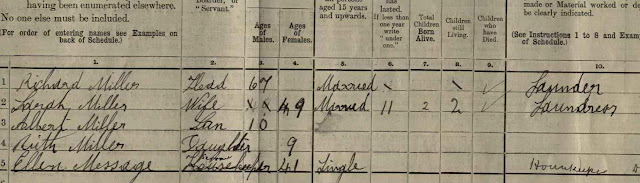 having been enumerated elsewhere.
No one else must be included.
(For order of entering names see Examples on
back of Schedule.)
"Servant."
Ages
of
Males.
Ages
of
Females.
paged 15 years
and upwards.
has
lasted.
If less than
one year
write
"under
one."
Total
Children
Born
Alive.
Children
still
Living.
Children
who
have
Died.
made or Material worked or de
be clearly indicated.
(See Instructions 1 to 8 and Exam
of Schedule.)
1. 2. 3. 4. 5. 6. 7. 8. 9. 10.
1 Richard Miller Head 67 Married Launder
2 Sarah Miller Wife 49 Married 11 2 2 Laundress
3 Albert Miller Son 10
4 Ruth Miller Daughter 9
5 Ellen Message Housekeeper 41 Single Housekeeper